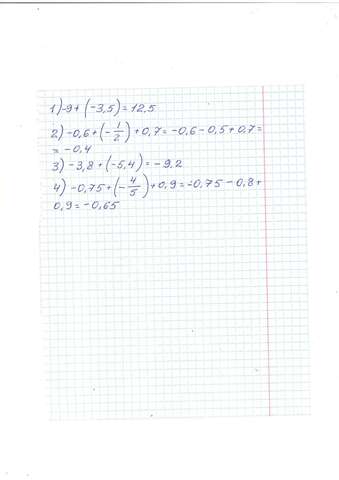 1) -9 + (-3,5) = 12,5
2) -0,6 + (-1/2) + 0,7 = -0,6 - 0,5 + 0,7 =
= -0,4
3) -3,8 + (-5,4) = -9,2
4) -0,75 + (-4/5) + 0,9 = -0,75 - 0,8 +
0,9 = -0,65